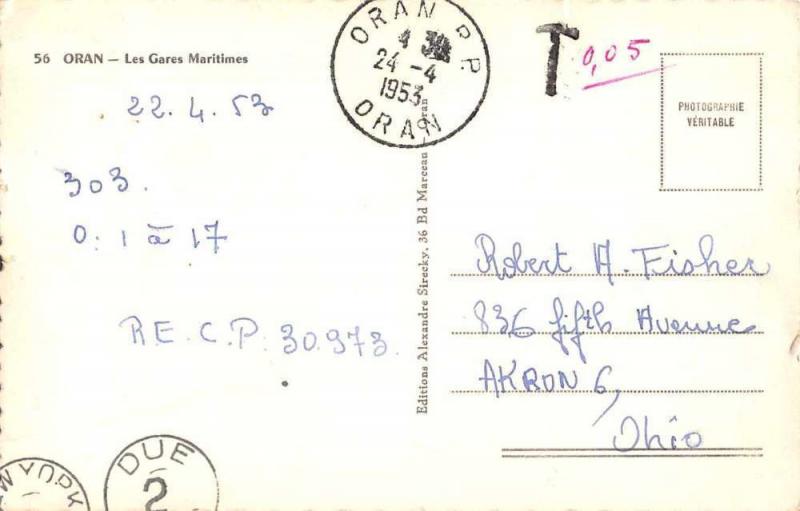 56 ORAN — Les Gares Maritimes
22. 4. 53
303.
0: 1 à 17
RE. C.P. 30.973.
ORAN P.P.
24 -4
1953
ORAN
T
0,05
PHOTOGRAPHIE
VÉRITABLE
Editions Alexandre Sirecky, 36 Bd Marceau, Oran
Robert A. Fisher
836 fifth Avenue
AKRON 6,
Ohio
W YORK
DUE
2